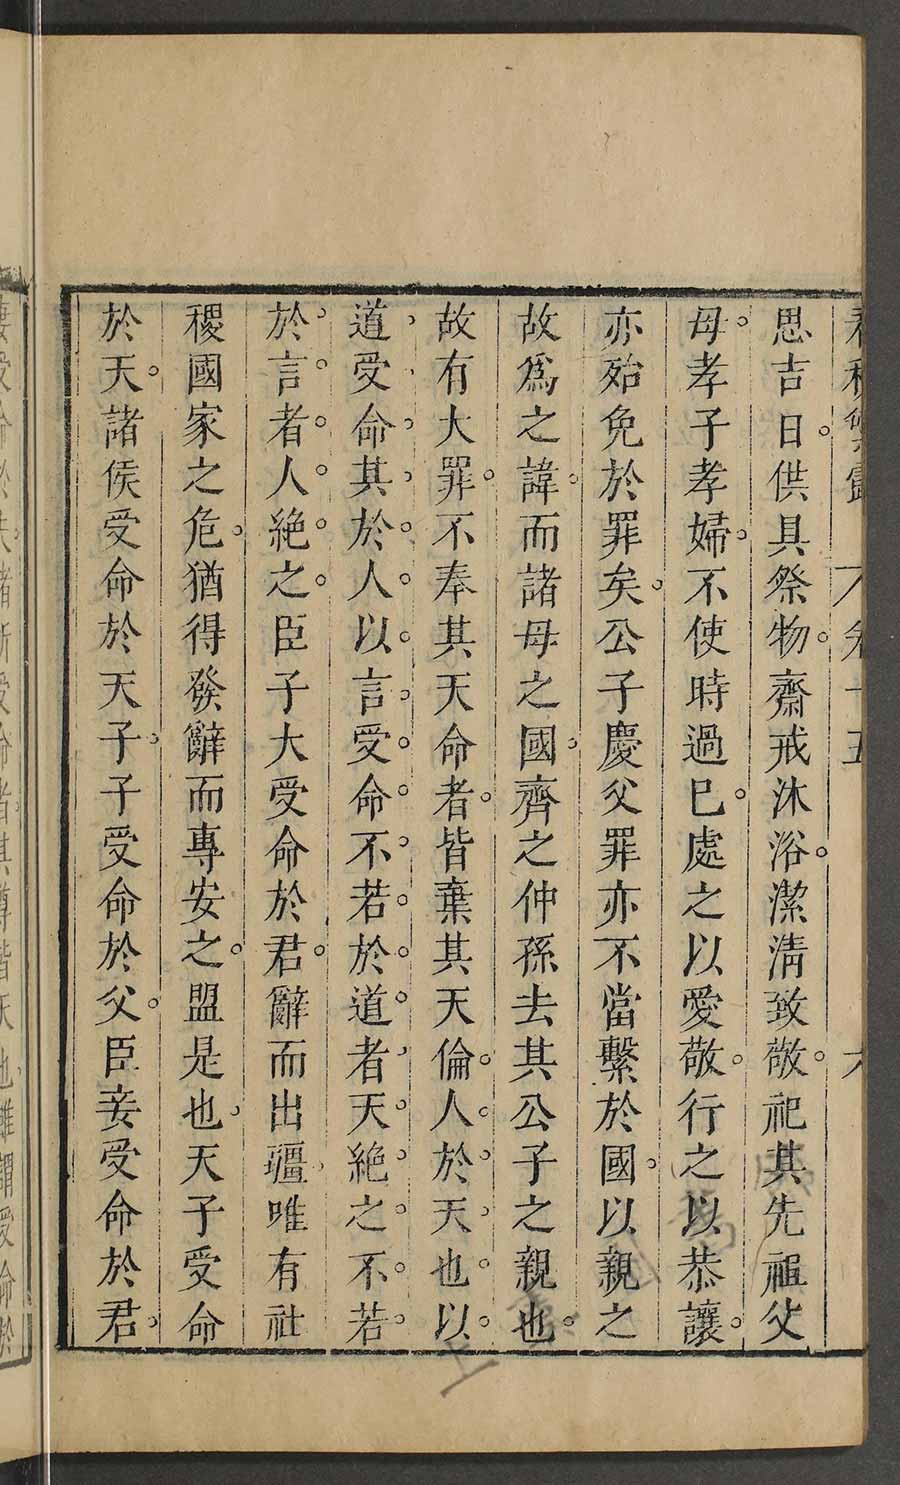 春秋繁露 卷十五 六
思吉日。供具祭物。齋戒沐浴。潔淸致敬。祀其先祖父
母。孝子孝婦。不使時過巳。處之以愛敬。行之以恭讓。
亦殆免於罪矣。公子慶父罪亦不當繫於國。以親之
故爲之諱。而諸母之國。齊之仲孫去其公子之親也。
故有大罪。不奉其天命者。皆棄其天倫。人於天也。以
道受命。其於人。以言受命。不若於道者。天絶之。不若
於言者。人絶之。臣子大受命於君。辭而出疆。唯有社
稷國家之危。猶得發辭而專安之。盟是也。天子受命
於天。諸侯受命於天子。子受命於父。臣妾受命於君。